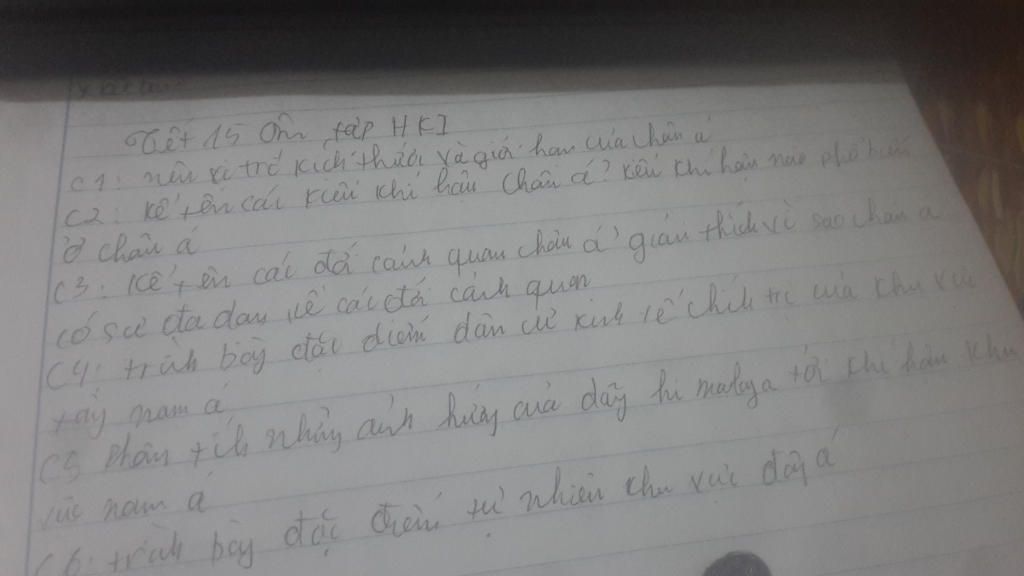 Tiết 15 Ôn tập HKI
C1: nêu vị trí kích thước và giới hạn của châu á
C2: kể tên các kiểu khí hậu châu á? kiểu khí hậu nào phổ biến
ở châu á
C3: kể tên các đới cảnh quan châu á? giải thích vì sao châu á
có sự đa dạng về các đới cảnh quan
C4: trình bày đặc điểm dân cư kinh tế chính trị của khu vực
tây nam á
C5 phân tích những ảnh hưởng của dãy hi malaya tới khí hậu khu
vực nam á
C6: trình bày đặc điểm tự nhiên khu vực đông á